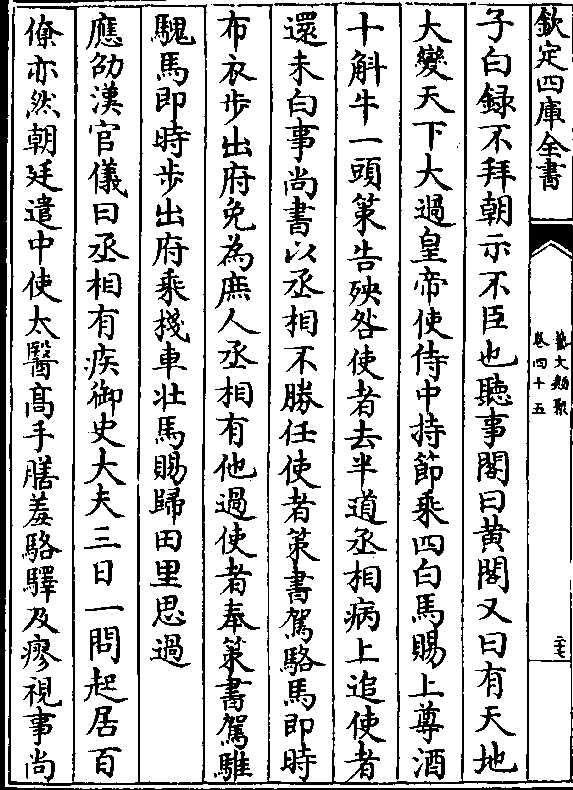 欽定四庫全書
藝文類聚
卷四十五
子白録不拜朝示不臣也聽事閣曰黄閣又曰有天地
大變天下大過皇帝使侍中持節乘四白馬賜上尊酒
十斛牛一頭策告殃咎使者去半道丞相病上追使者
還未白事尚書以丞相不勝任使者策書駕駱馬即時
布衣步出府免為庶人丞相有他過使者奉策書駕騅
騩馬即時步出府乘棧車壯馬賜歸田里思過
應劭漢官儀曰丞相有疾御史大夫三日一問起居百
僚亦然朝廷遣中使太醫髙手膳羞駱驛及瘳視事尚